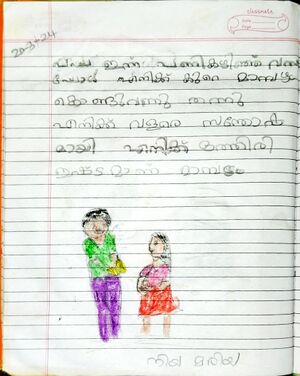 classmate
Date
Page
20-3-24
പപ്പ ഇന്ന് പണികഴിഞ്ഞ് വന്ന
പ്പോൾ എനിക്ക് കുറെ മാമ്പഴം
കൊണ്ടുവന്നു തന്നു
എനിക്ക് വളരെ സന്തോഷ
മായി എനിക്ക് ഒത്തിരി
ഇഷ്ടമാണ് മാമ്പഴം
നിയ മരിയ